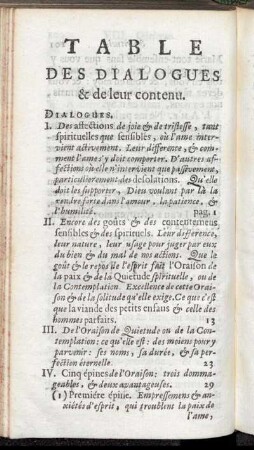 TABLE
DES DIALOGUES
& de leur contenu.
DIALOGUES.
I. Des affections de joie & de tristesse, tant
spirituelles que sensibles, où l'ame inter-
vient activement. Leur difference, & com-
ment l'ame s'y doit comporter. D'autres af-
fections où elle n'intervient que passivement,
particulierement des desolations. Qu'elle
doit les supporter, Dieu voulant par là la
rendre forte dans l'amour, la patience, &
l'humilité. pag. 1
II. Encore des goûts & des contentemens
sensibles & des spirituels. Leur difference,
leur nature, leur usage pour juger par eux
du bien & du mal de nos actions. Que le
goût & le repos de l'esprit fait l'Oraison de
la paix & de la Quietude spirituelle, ou de
la Contemplation. Excellence de cette Orai-
son & de la solitude qu'elle exige. Ce que c'est
que la viande des petits enfans & celle des
hommes parfaits. 13
III. De l'Oraison de Quietude ou de la Con-
templation: ce qu'elle est: des moiens pour y
parvenir: ses noms, sa durée, & sa per-
fection éternelle. 23
IV. Cinq épines de l'Oraison; trois domma-
geables, & deux avantageuses. 29
(1) Premiére épine. Empressemens & an-
xiétés d'esprit, qui troublent la paix de
l'ame,